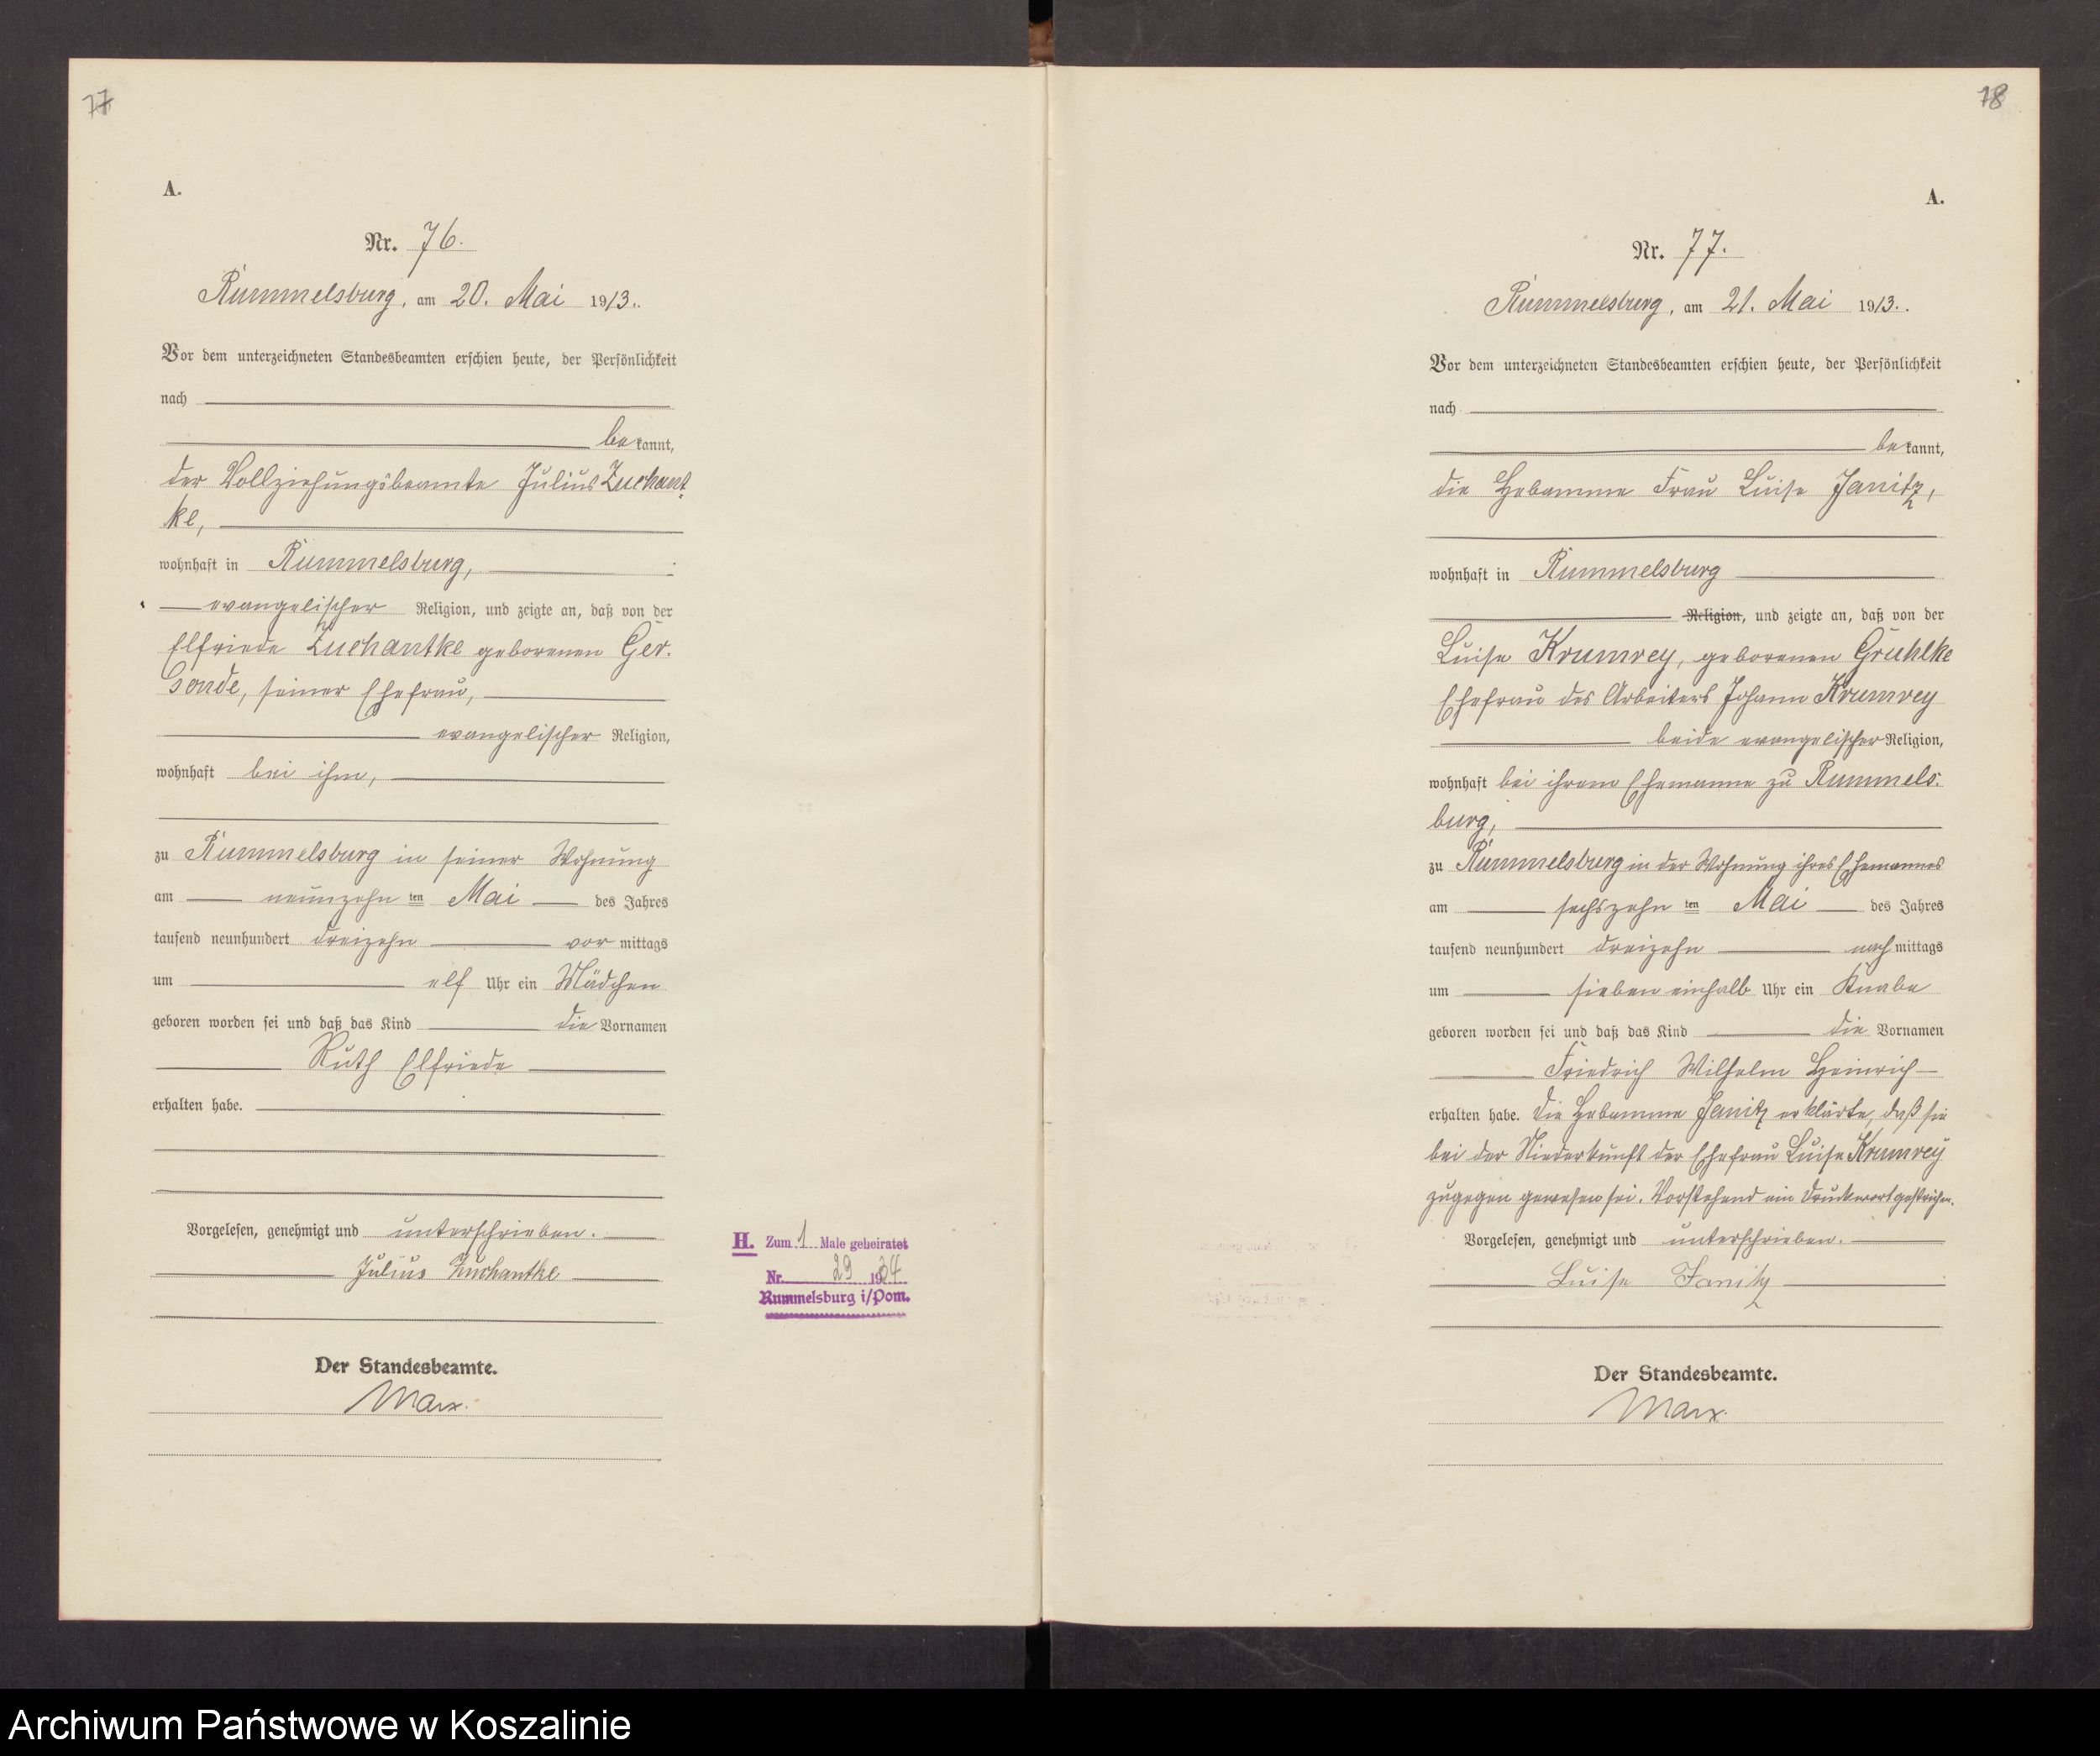 77
A.
Nr. 76.
Rummelsburg, am 20. Mai 1913.
Vor dem unterzeichneten Standesbeamten erschien heute, der Persönlichkeit
nach
bekannt,
der Vollziehungsbeamte Julius Zuchant-
ke,
wohnhaft in Rummelsburg,
evangelischer Religion, und zeigte an, daß von der
Elfriede Zuchantke geborenen Ger-
sonde, seiner Ehefrau,
evangelischer Religion,
wohnhaft bei ihm,
zu Rummelsburg in seiner Wohnung
am neunzehn ten Mai des Jahres
tausend neunhundert dreizehn vormittags
um elf Uhr ein Mädchen
geboren worden sei und daß das Kind die Vornamen
Ruth Elfriede
erhalten habe.
Vorgelesen, genehmigt und unterschrieben.
Julius Zuchantke
Der Standesbeamte.
Marx.
H. Zum 1 Male geheiratet
Nr. 29 1934
Rummelsburg i/Pom.
78
A.
Nr. 77.
Rummelsburg, am 21. Mai 1913.
Vor dem unterzeichneten Standesbeamten erschien heute, der Persönlichkeit
nach
bekannt,
die Hebamme Frau Luise Janitz,
wohnhaft in Rummelsburg
Religion, und zeigte an, daß von der
Luise Krumrey, geborenen Gruhlke
Ehefrau des Arbeiters Johann Krumrey
beide evangelischer Religion,
wohnhaft bei ihrem Ehemanne zu Rummels-
burg,
zu Rummelsburg in der Wohnung ihres Ehemannes
am sechszehn ten Mai des Jahres
tausend neunhundert dreizehn nachmittags
um sieben einhalb Uhr ein Knabe
geboren worden sei und daß das Kind die Vornamen
Friedrich Wilhelm Heinrich
erhalten habe. Die Hebamme Janitz erklärte, daß sie
bei der Niederkunft der Ehefrau Luise Krumrey
zugegen gewesen sei. Vorstehend ein Druckwort gestrichen.
Vorgelesen, genehmigt und unterschrieben.
Luise Janitz
Der Standesbeamte.
Marx.
Archiwum Państwowe w Koszalinie